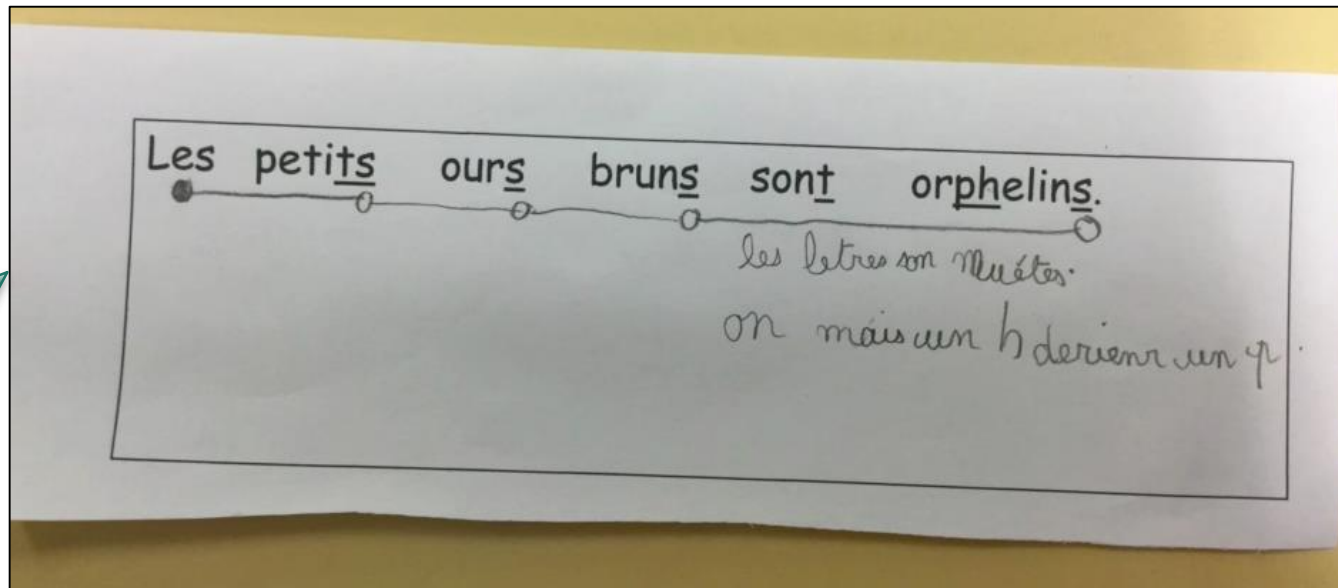 Les petits ours bruns sont orphelins.
les letres son muétes.
on mais un h derienr un p.